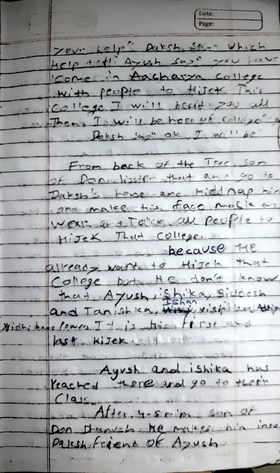 Date:
Page:
your help" Daksh say "which
help tell Ayush say" you have
come in Aaicharya college
with people to HiJek This
College I will beat you all
Then I will be hero of college
Daksh say" ok I will be
From back of the Tree son
of Don listen that and go to
Daksh's home and kiddnap him
and makes his face mask and
wear and Take all people to
HiJek That College.
because HE
already want to HiJek that
College but He don't know
that Ayush, ishika, Siddesh
and Tanishka,
Ishan
have powers It is his first and
last Hijek.
Ayush and ishika has
reached there and go to their
Class.
After 4-5 min son of
Don he makes him into
Daksh friend of Ayush